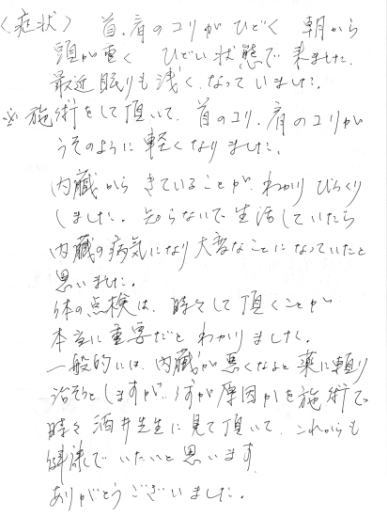 (症状) 首、肩のコリがひどく 朝から
頭が重く ひどい状態で来ました。
最近眠りも浅くなっていました。
※施術をして頂いて、首のコリ、肩のコリが
うそのように軽くなりました。
内臓からきていることがわかりびっくり
しました。知らないで生活していたら
内臓の病気になり大変なことになっていたと
思いました。
体の点検は、時々して頂くことが
本当に重要だとわかりました。
一般的には、内臓が悪くなると薬に頼り
治そうとしますが、 原因かを施術で
時々酒井先生に見て頂いて、これからも
健康でいたいと思います。
ありがとうございました。